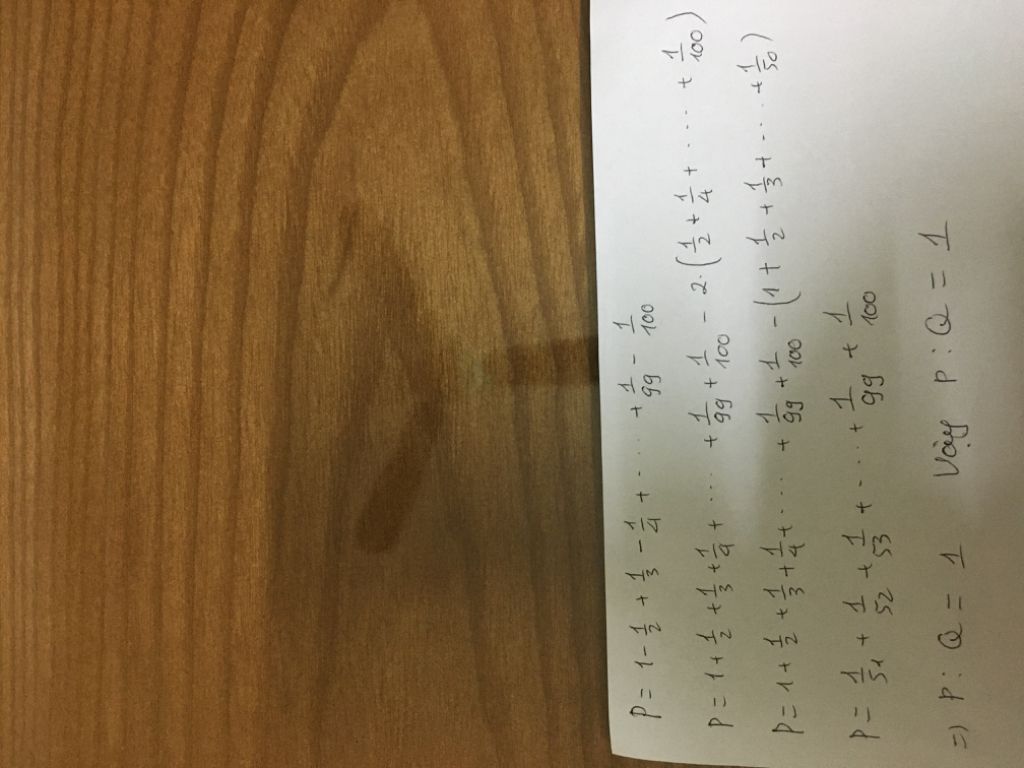 P = 1 - 1/2 + 1/3 - 1/4 + ..... + 1/99 - 1/100
P = 1 + 1/2 + 1/3 + 1/4 + ..... + 1/99 + 1/100 - 2.(1/2 + 1/4 + ..... + 1/100)
P = 1 + 1/2 + 1/3 + 1/4 + ..... + 1/99 + 1/100 - (1 + 1/2 + 1/3 + ... + 1/50)
P = 1/51 + 1/52 + 1/53 + ..... + 1/99 + 1/100
=) P : Q = 1 Vậy P : Q = 1